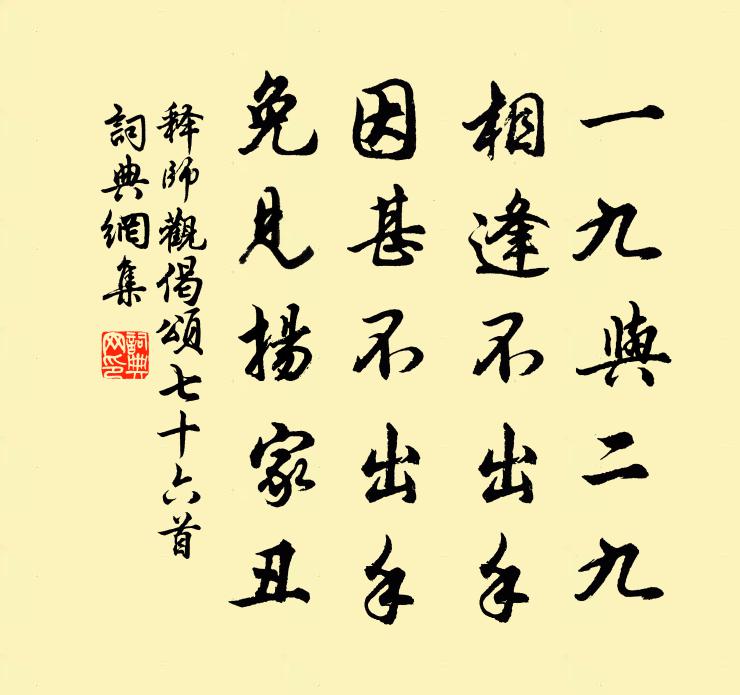 一九與二九
相逢不出手
因甚不出手
免見揚家丑
释師觀偈頌七十六首
詞典網集
詞典
网印